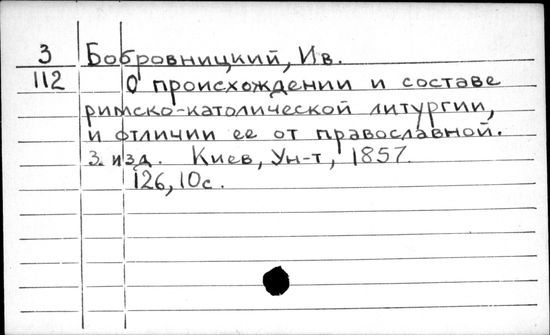 3 Бобровницкий, Ив.
112 О происхождении и составе
римско-католической литургии,
и отличии ее от православной.
3. изд. Киев, Ун-т, 1857.
126, 10с.